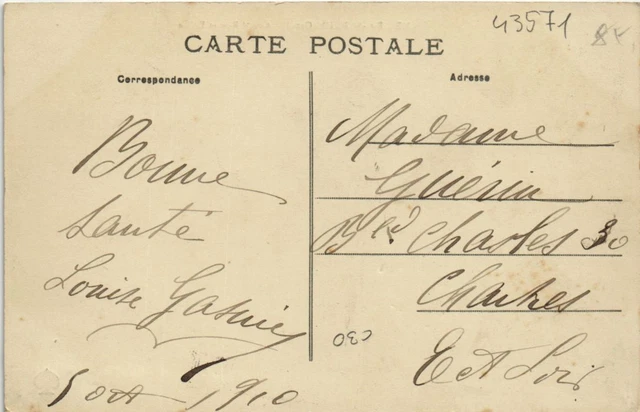 43571
CARTE POSTALE
Correspondance
Adresse
Bonne
Santé
Louise Gasnier
5 oct 1910
Madame
Guérin
Bld Charles 30
Chartres
E et Loir
030